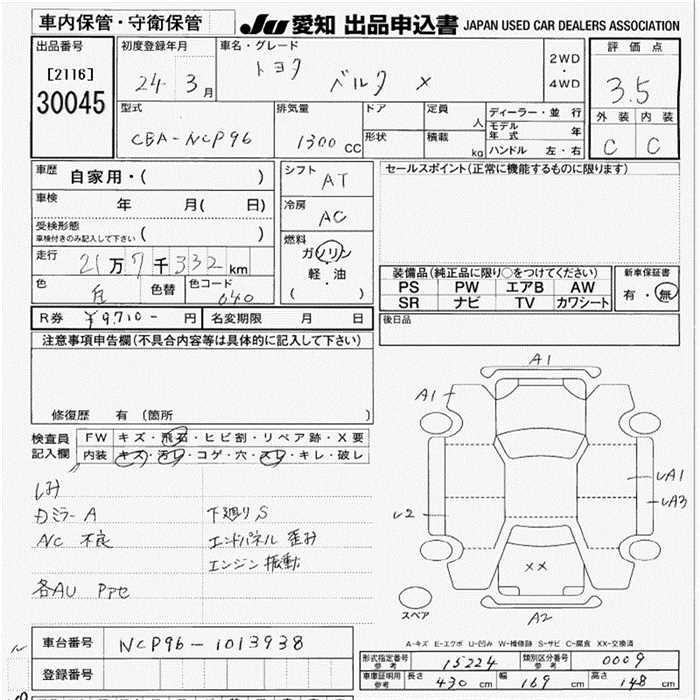 車内保管・守衛保管
JU 愛知 出品申込書 JAPAN USED CAR DEALERS ASSOCIATION
出品番号
[2116]
30045
初度登録年月
24 3月
車名・グレード
トヨタ ベルタ X
2WD
・
4WD
評価点
3.5
外装 内装
C C
型式
CBA-NCP96
排気量
1300 CC
ドア
形状
定員 人
積載 kg
ディーラー・並行
モデル年式 年
ハンドル 左・右
車歴 自家用・( )
車検 年 月( 日)
受検形態
車検付きのみ記入して下さい ( )
走行 21万7千332km
色 白 色替 色コード 040
シフト
AT
冷房
AC
燃料
ガソリン
軽・油
( )
セールスポイント(正常に機能するものに限ります)
装備品(純正品に限り○をつけてください)
PS PW エアB AW
SR ナビ TV カワシート
新車保証書
有・無
R券 ¥9,710- 円 名変期限 月 日
後日品
注意事項申告欄(不具合内容等は具体的に記入して下さい)
修復歴 有(箇所
検査員
記入欄
FW キズ・飛石・ヒビ割・リペア跡・X要
内装 キズ・汚レ・コゲ・穴・スレ・キレ・破レ
シミ
カミラーA 下廻りS
A/C 不良 エンドパネル 歪み
エンジン振動
各AU
A1
A1
U2
UA1
UA3
XX
A2
スペア
A-キズ E-エクボ U-凹み W-補修跡 S-サビ C-腐食 XX-交換済
車台番号 NCP96-1013938
登録番号
形式指定番号
参考
15224
類別区分番号
参考
0009
車庫証明用
参考
長さ 430 cm 幅 169 cm 高さ 148 cm